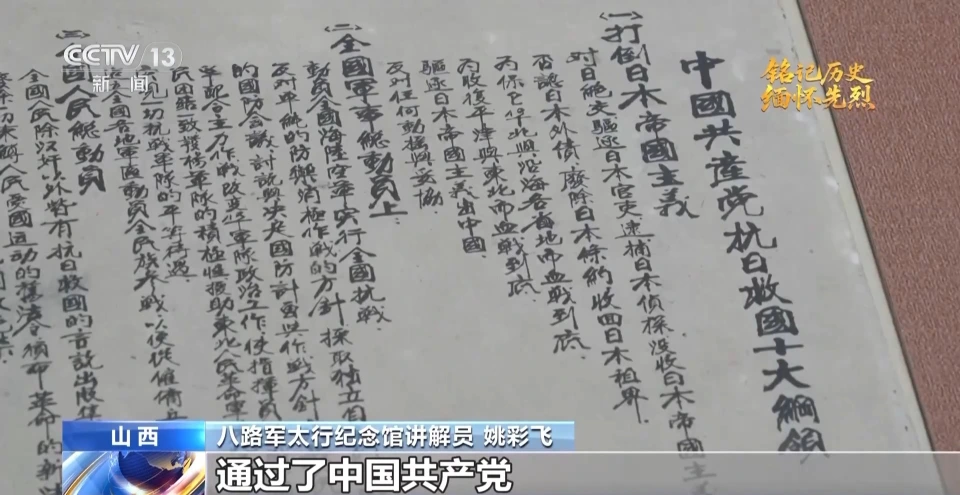 CCTV 13
新闻
铭记历史
缅怀先烈
中國共產党抗日救國十大綱領
(一)打倒日本帝國主義
对日絕交驅逐日本官吏逮捕日本偵探、没收日本帝國主
否認日本外債,廢除日本條約收回日本租界.
为保卫华北與沿海各省地而血戰到底.
为收復平津與東北而血戰到底.
驅逐日本帝國主義出中國
反对任何動摇與妥協.
(二)全國軍事總動員上
動員全國海陸空軍实行全國抗戰.
反对單純的防禦消極作戰的方針 採取獨立自
的國防会議討論與决定國防計畫與作戰方針
軍配合主力作战改革軍隊政治工作使指揮員
民团結一致發揚軍隊的積極性援助東北人民革命軍
一切抗戰軍隊的平等待遇
全國各地軍區動員全民族参戰以便從僱傭兵
(三)全國人民總動員
全國人民除汉奸外都有抗日救國的言說出版集
人民愛國運動的舊法令頒布革命的新法
山西
八路军太行纪念馆讲解员 姚彩飞
通过了中国共产党